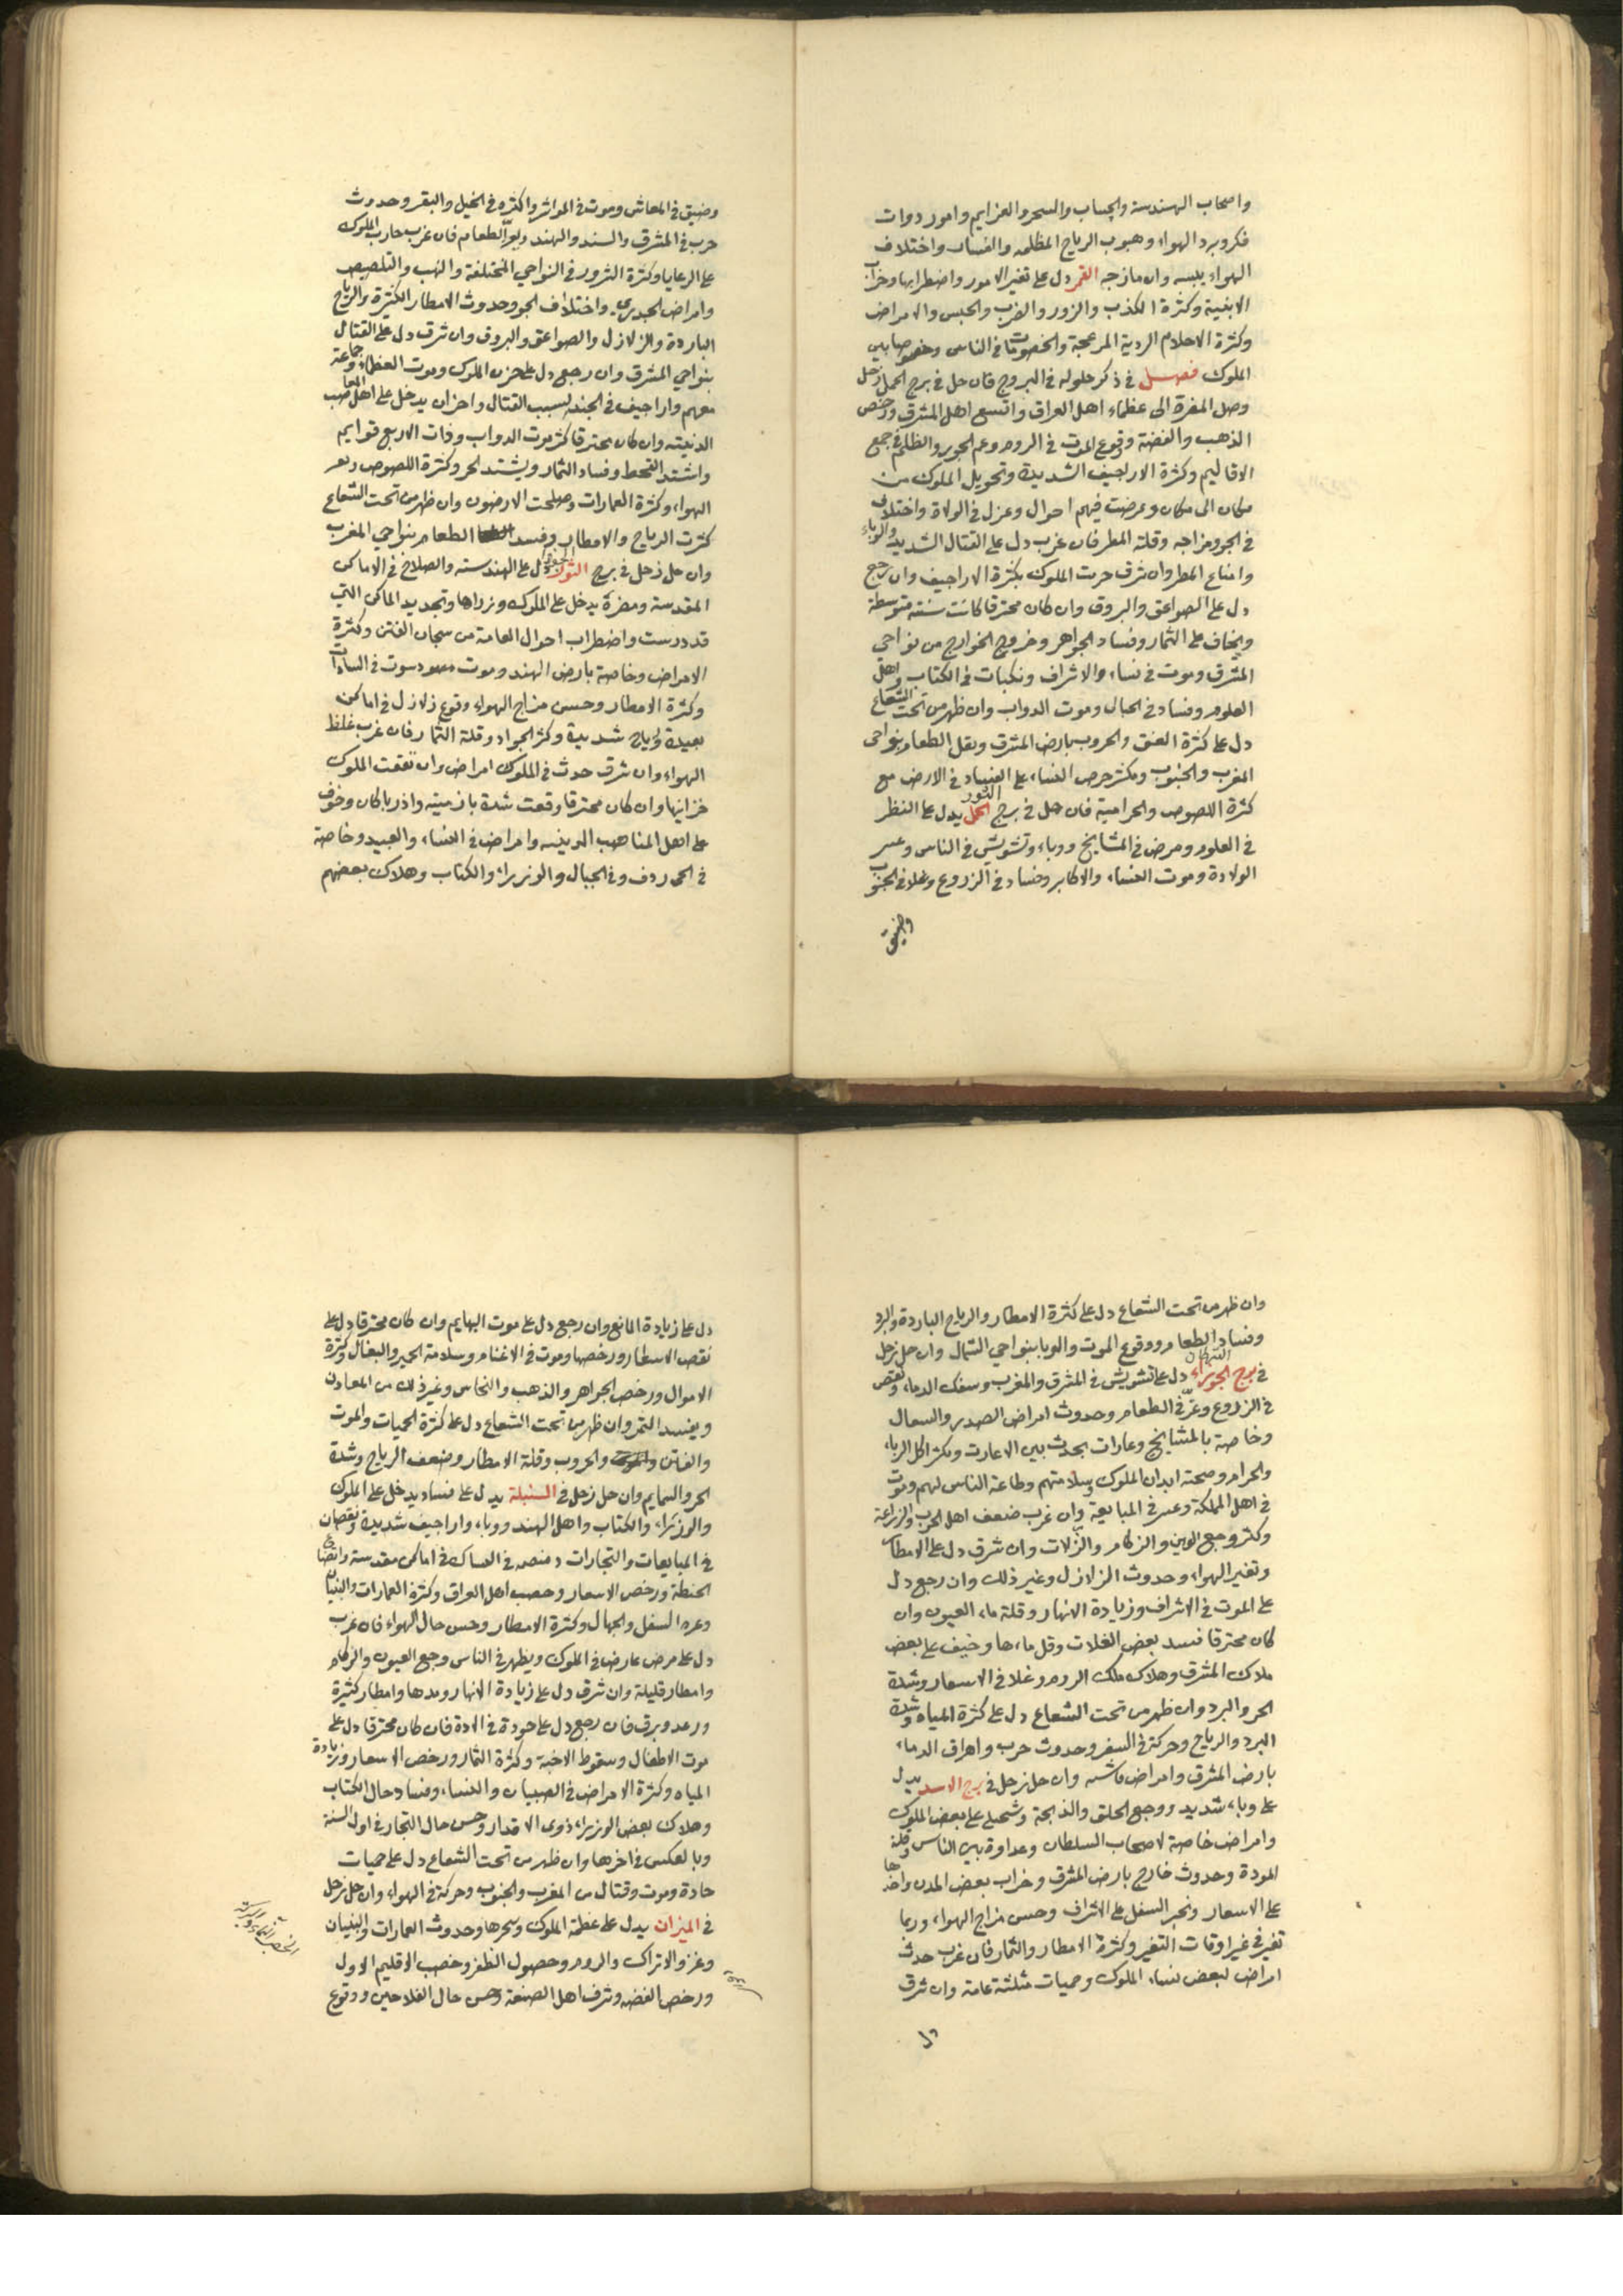 واصحاب الهندسة والحساب والسحر والعزايم وامور دوات
فكروبرد الهواء وهبوب الرياح المظلمه والفساد واختلاف
الهواء يبسه وان مازجه القمر دل على تغير الامور واضطرابها وخراب
الابنية وكثرة الكذب والزور والضرب والحبس والامراض
وكثرة الاحلام الردية المزعجة والخصومات في الناس وخصوصا بين
الملوك فصل في ذكر حلوله في البروج فان حل في برج الحمل زحل
وصل المضرة الى عظماء اهل العراق واتسع اهل المشرق ورخص
الذهب والفضة ووقوع الموت في الروم وعم الجور والظلم في جمع
الاقاليم وكثرة الاراجيف الشديدة وتحويل الملوك من
مكان الى مكان وعرضت فيهم احوال وعزل في الولاة واختلاف
في الجو ومزاجه وقلة المطر فان غرب دل على القتال الشديد والوباء
وامتناع المطر وان شرق حربت الملوك بكثرة الاراجيف وان رجع
دل على الصواعق والبروق وان كان محترقا كانت سنته متوسطة
ويخاف على الثمار وفساد الجواهر وخروج الخوارج من نواحي
المشرق وموت في نساء والاشراف ونكبات في الكتاب واهل
العلوم وفساد في الجبال وموت الدواب وان ظهر من تحت الشعاع
دل على كثرة الفتن والحروب بارض المشرق ويقل الطعام بنواحي
المغرب والجنوب ويكثر حرص النساء على الفساد في الارض مع
كثرة اللصوص والحرامية فان حل في برج الحمل الثور يدل على النظر
في العلوم ومرض في المشايخ ووباء وتشويش في الناس وعسر
الولادة وموت النساء والاكابر وفساد في الزروع وغلا في الجنوب
وضيق
وضيق في المعاش وموت في المواشي واكثره في الخيل والبقر وحدوث
حرب في المشرق والسند والهند ويعز الطعام فان غرب حارب الملوك
على الرعايا وكثرة الشرور في النواحي المختلفة والنهب والتلصيص
وامراض الجدري واختلاف الجو وحدوث الامطار الكثيرة والرياح
الباردة والزلازل والصواعق والبروق وان شرق دل على القتال
بنواحي المشرق وان رجع دل على حزن الملوك وموت العظماء وجماعة
معهم واراجيف في الجند بسبب القتال واحزان يدخل على اهل المناصب
الدنيته وان كان محترقا كثر موت الدواب وذات الاربع قوايم
واشتد القحط وفساد الثمار ويشتد الحر وكثرة اللصوص
الهواء وكثرة العمارات وصلحت الارضون وان ظهر من تحت الشعاع
كثرت الرياح والامطار وفسد الطعام بنواحي المغرب
وان حل زحل في برج الثور دل على الهندسته والصلاح في الاماكن
المقدسة ومضرة يدخل على الملوك وزراها وتجديد الماكن التي
قد درست واضطراب احوال العامة من الفتن وكثرة
الامراض وخاصة بارض الهند وموت في السادات
وكثرة الامطار وحسن مزاج الهواء وقوع زلازل في اماكن
بعيدة ورياح شديدة وكثر الجراد وقلة الثمار فان غرب غلظ
الهواء وان شرق حدث في الملوك امراض وان نفقت الملوك
خزاينها وان كان محترقا وقعت شدة بازمينه واذرباكان وخوف
على اهل المذاهب الدينيه وامراض في النساء والعبيد وخاصة
في وفي الجبال والوزراء والكتاب وهلاك بعضهم
وان ظهر من تحت الشعاع دل على كثرة الامطار والرياح الباردة والبرد
وفساد الطعام ووقوع الموت والوبا بنواحي الشمال وان حل زحل
في برج الجوزاء السرطان دل على تشويش في المشرق والمغرب وسفك الدماء ونقص
في الزروع وعز في الطعام وحدوث امراض الصدر والسعال
وخاصة بالمشايخ وغارات بحدث بين الاعارت ويكثر اكل الرباء
والحرام وصحة ابدان الملوك وسلامتهم وطاعة الناس لهم وموت
في اهل المملكة وعسر في المبايعة وان غرب ضعف اهل الحرب والزراعة
وكثر وجع العين والزكام والنزلات وان شرق دل على الامطار
وتغير الهواء وحدوث الزلازل وغير ذلك وان رجع دل
على الموت في الاشراف وزيادة الانهار وقلة ماء العيون وان
كان محترقا فسد بعض الغلات وقل ماءها وخيف على بعض
ملاك المشرق وهلاك ملك الروم وغلا في الاسعار وشدة
الحر والبرد وان ظهر من تحت الشعاع دل على كثرة المياه وشدة
البرد والرياح وحركة في السفر وحدوث حرب واهراق الدماء
بارض المشرق وامراض وان حل زحل في برج الاسد يدل
على وباء شديد ووجع الحلق والذبحة على بعض الملوك
وامراض خاصة لاصحاب السلطان وعداوة بين الناس وقلة
المودة وحدوث خارج بارض المشرق وخراب بعض المدن
على الاسعار وتجبر السفل على الاشراف وحسن مزاج الهواء وربما
تغير في غير اوقات التغير وكثرة الامطار والثمار فان غرب حدث
امراض لبعض نساء الملوك وحميات مثلثة عامة وان شرق
دل
دل على زيادة المانع وان رجع دل على موت البهايم وان كان محترقا دل على
نقص الاسعار ورخصها وموت في الاغنام وسلامة الحمير والبغال وكثرة
الاموال ورخص الجواهر والذهب والنحاس وغير ذلك من المعادن
ويفسد الثمر وان ظهر من تحت الشعاع دل على كثرة الحميات والموت
والفاتن والحروب وقلة الامطار وضعف الرياح وشدة
الحر والسمايم وان حل زحل في السنبلة يدل على فساد يدخل على الملوك
والوزراء والكتاب واهل الهند ووباء واراجيف شديدة ونقصان
في المبايعات والتجارات في اماكن مقدسة واتضاع
الحنطة ورخص الاسعار وخصب اهل العراق وكثرة العمارات والبنيان
السفل والجهال وكثرة الامطار وحسن حال الهواء فان غرب
دل على مرض عارض في الملوك ويظهر في الناس وجع العيون والزكام
وامطار قليلة وان شرق دل على زيادة الانهار ومدها وامطار كثيرة
ورعد وبرق فان رجع دل على جودة في الادة فان كان محترقا دل على
موت الاطفال وسقوط الاجنة وكثرة الثمار ورخص الاسعار وزيادة
المياه وكثرة الامراض في الصبيان والنساء وفساد حال الكتاب
وهلاك بعض الوزراء ذوى الاقدار وحسن حال التجار في اول السنة
وبالعكس في اخرها وان ظهر من تحت الشعاع دل على حميات
حادة وموت وقتال من المغرب والجنوب وحركة في الهواء وان حل زحل
في الميزان يدل على عظمة الملوك وحدوث العمارات والبنيان
وعز والاتراك والروم وحصول الظفر وخصب الاقليم الاول
ورخص الفضه وشرف اهل الصنعة وحسن حال الفلاحين ووقوع